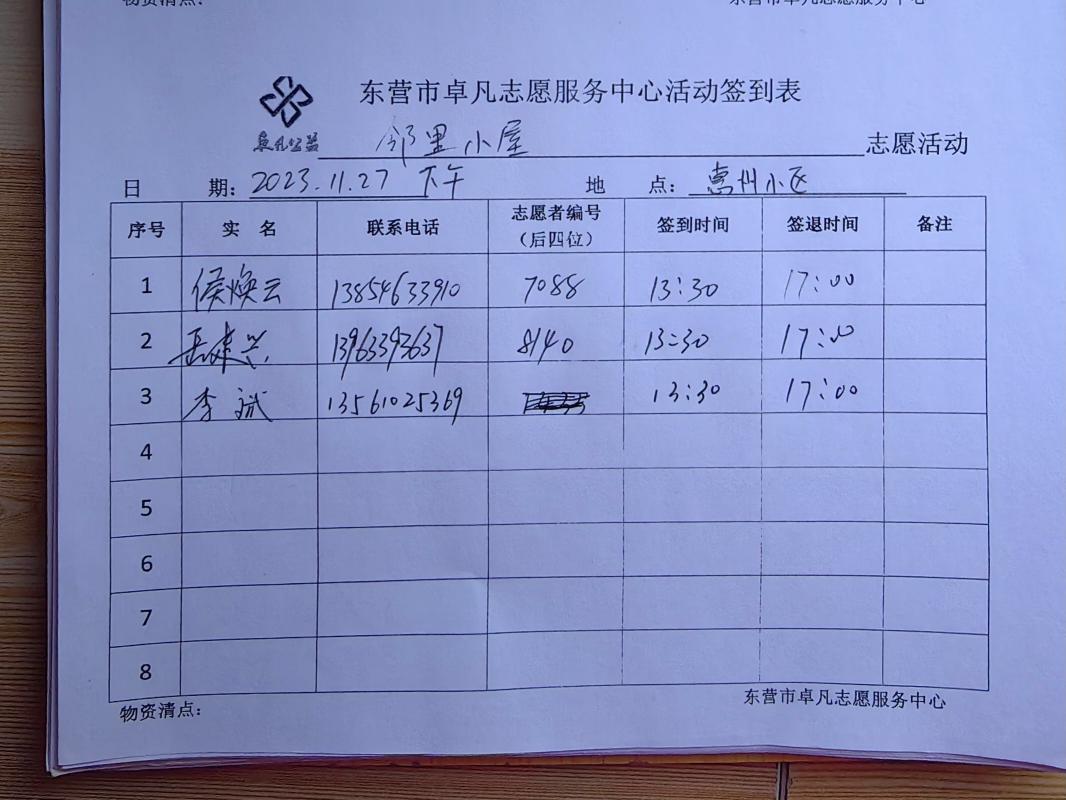 物资清点：
东营市卓凡志愿服务中心
东营市卓凡志愿服务中心活动签到表
卓凡公益
邻里小屋 志愿活动
日 期：2023.11.27 下午 地 点：惠州小区
序号 实 名 联系电话 志愿者编号（后四位） 签到时间 签退时间 备注
1 侯焕云 13854633910 7088 13:30 17:00
2 孟建兴 13963393637 8140 13:30 17:00
3 李斌 13561025369 13:30 17:00
4
5
6
7
8
物资清点：
东营市卓凡志愿服务中心